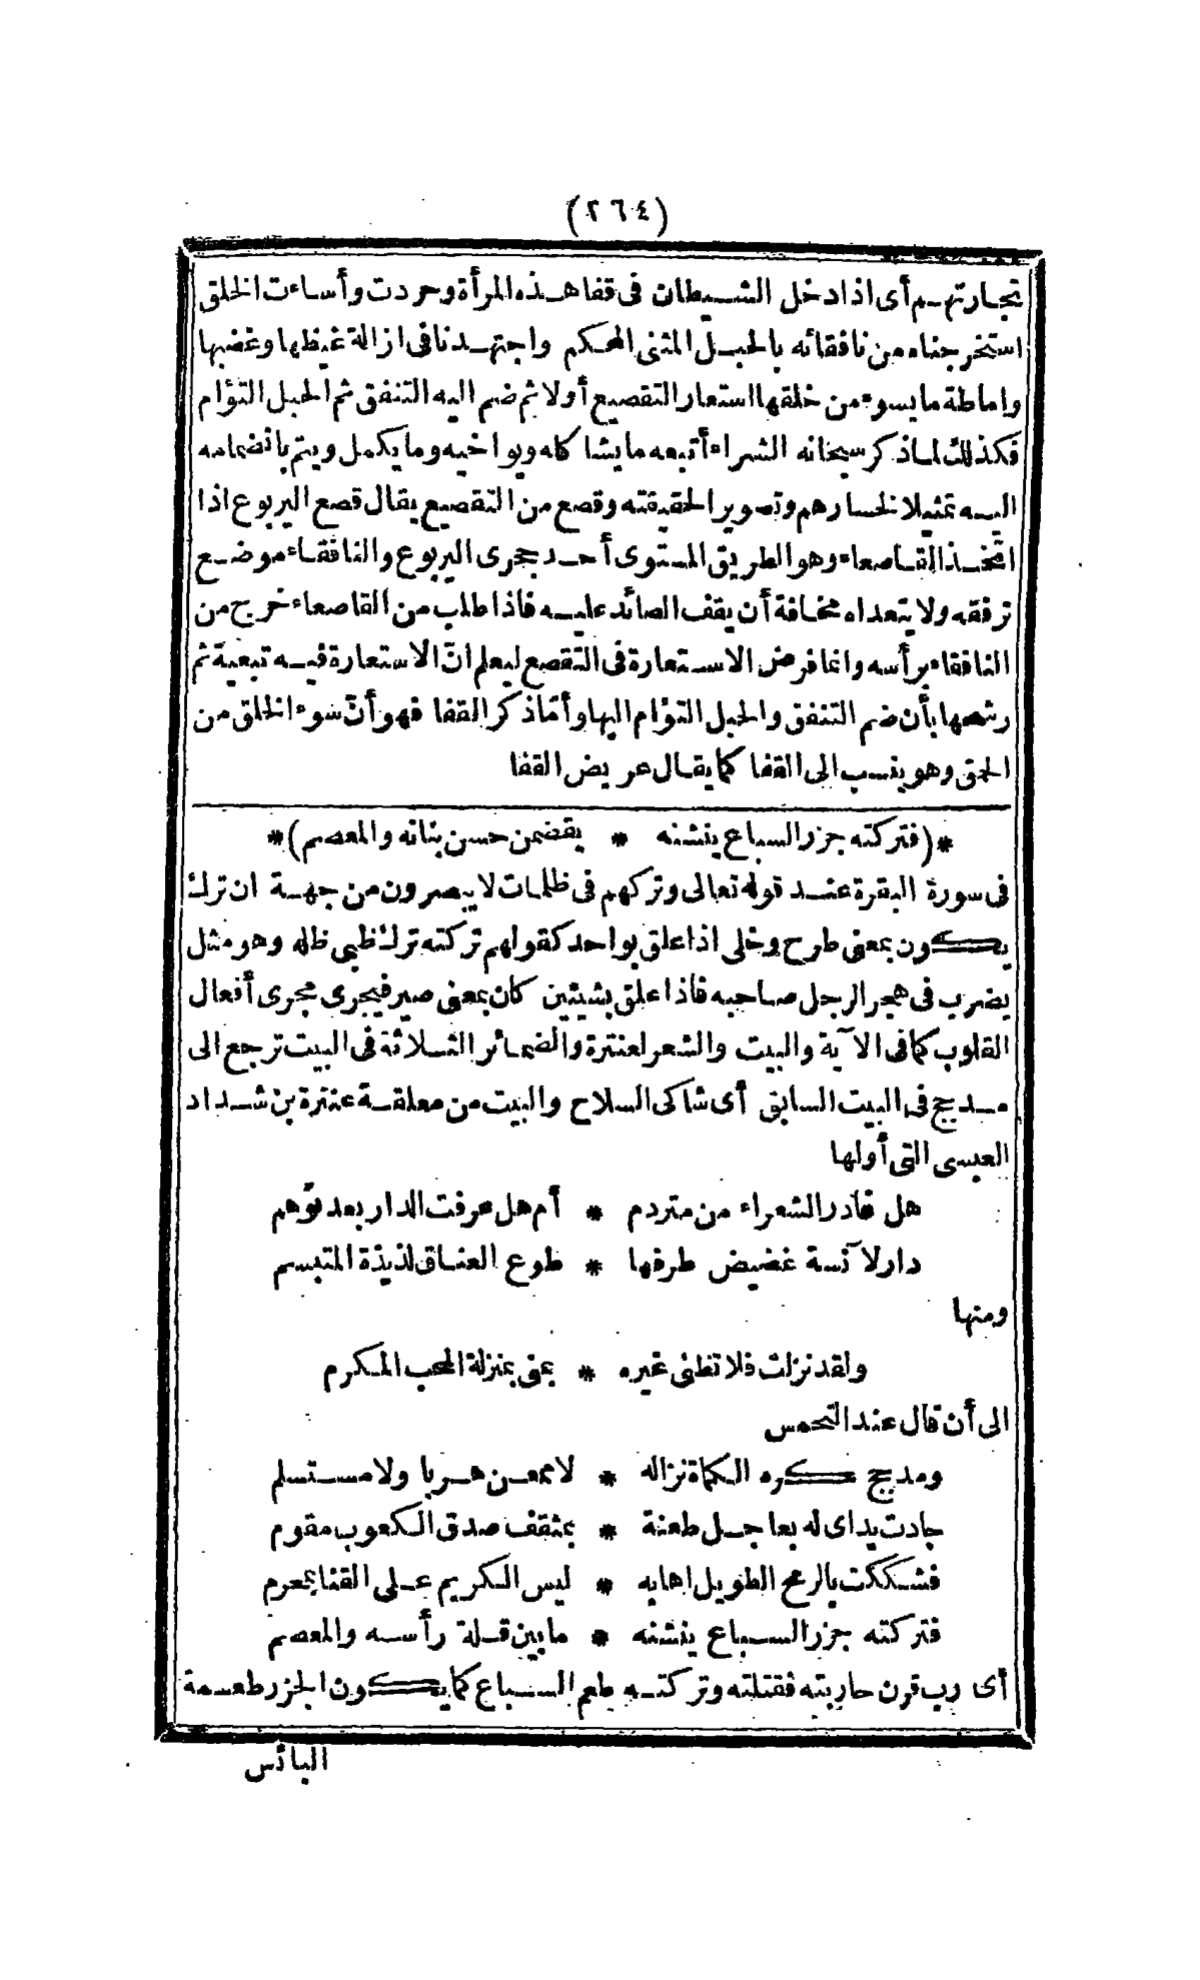 (٢٦٤)
تجارتهم أى اذا دخل الشيطان فى قفا هذه المرأة وحردت وأساءت الخلق
استخرجناه من نافقائه بالحبل المثنى المحكم واجتهدنا فى ازالة غيظها وغضبها
واماطة ما يسوء من خلقها استعار التقصيع أولا ثم ضم اليه التنفق ثم الحبل التؤام
فكذلك لما ذكر سبحانه الشراء أتبعه ما يشاكله ويواخيه وما يكمل ويتم بانضمامه
اليه تمثيلا لخسارهم وتصويرا لحقيقته وقصع من التقصيع يقال قصع اليربوع اذا
اتخذ القاصعاء وهو الطريق المستوى أحد جحرى اليربوع والنافقاء موضع
ترفقه ولا يتعداه مخافة أن يقف الصائد عليه فاذا طلب من القاصعاء خرج من
النافقاء برأسه وانما فرض الاستعارة فى التقصع ليعلم انّ الاستعارة فيه تبعية ثم
رشحها بأن ضم التنفق والحبل التؤام اليها وأمّا ذكر القفا فهو أنّ سوء الخلق من
الحمق وهو ينسب الى القفا كما يقال عريض القفا
*(فتركته جزر السباع ينشنه * يقضمن حسن بنانه والمعصم)*
فى سورة البقرة عند قوله تعالى وتركهم فى ظلمات لا يبصرون من جهة ان ترك
يكون بمعنى طرح وخلى اذا علق بواحد كقولهم تركته ترك ظبى ظله وهو مثل
يضرب فى هجر الرجل صاحبه فاذا علق بشيئين كان بمعنى صير فيجرى مجرى أفعال
القلوب كما فى الآية والبيت والشعر لعنترة والضمائر الثلاثة فى البيت ترجع الى
مدجج فى البيت السابق أى شاكى السلاح والبيت من معلقة عنترة بن شداد
العبسى التى أولها
هل غادر الشعراء من متردم * أم هل عرفت الدار بعد توّهم
دار لآنسة غضيض طرفها * طوع العناق لذيذة المتبسم
ومنها
ولقد نزلت فلا تظنى غيره * بمنى بمنزلة المحب المكرم
الى أن قال عند التحمس
ومدجج كره الكماة نزاله * لا ممعن هربا ولا مستسلم
جادت يداى له بعاجل طعنة * بمثقف صدق الكعوب مقوم
فشككت بالرمح الطويل اهابه * ليس الكريم على القنا بمحرم
فتركته جزر السباع ينشنه * ما بين قلة رأسه والمعصم
أى رب قرن حاربته فقتلته وتركته طعم السباع كما يكون الجزر طعمة
البائس